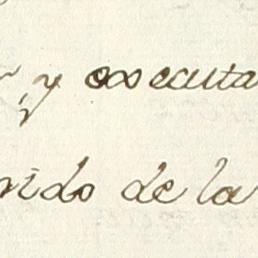 y executa
rido de la